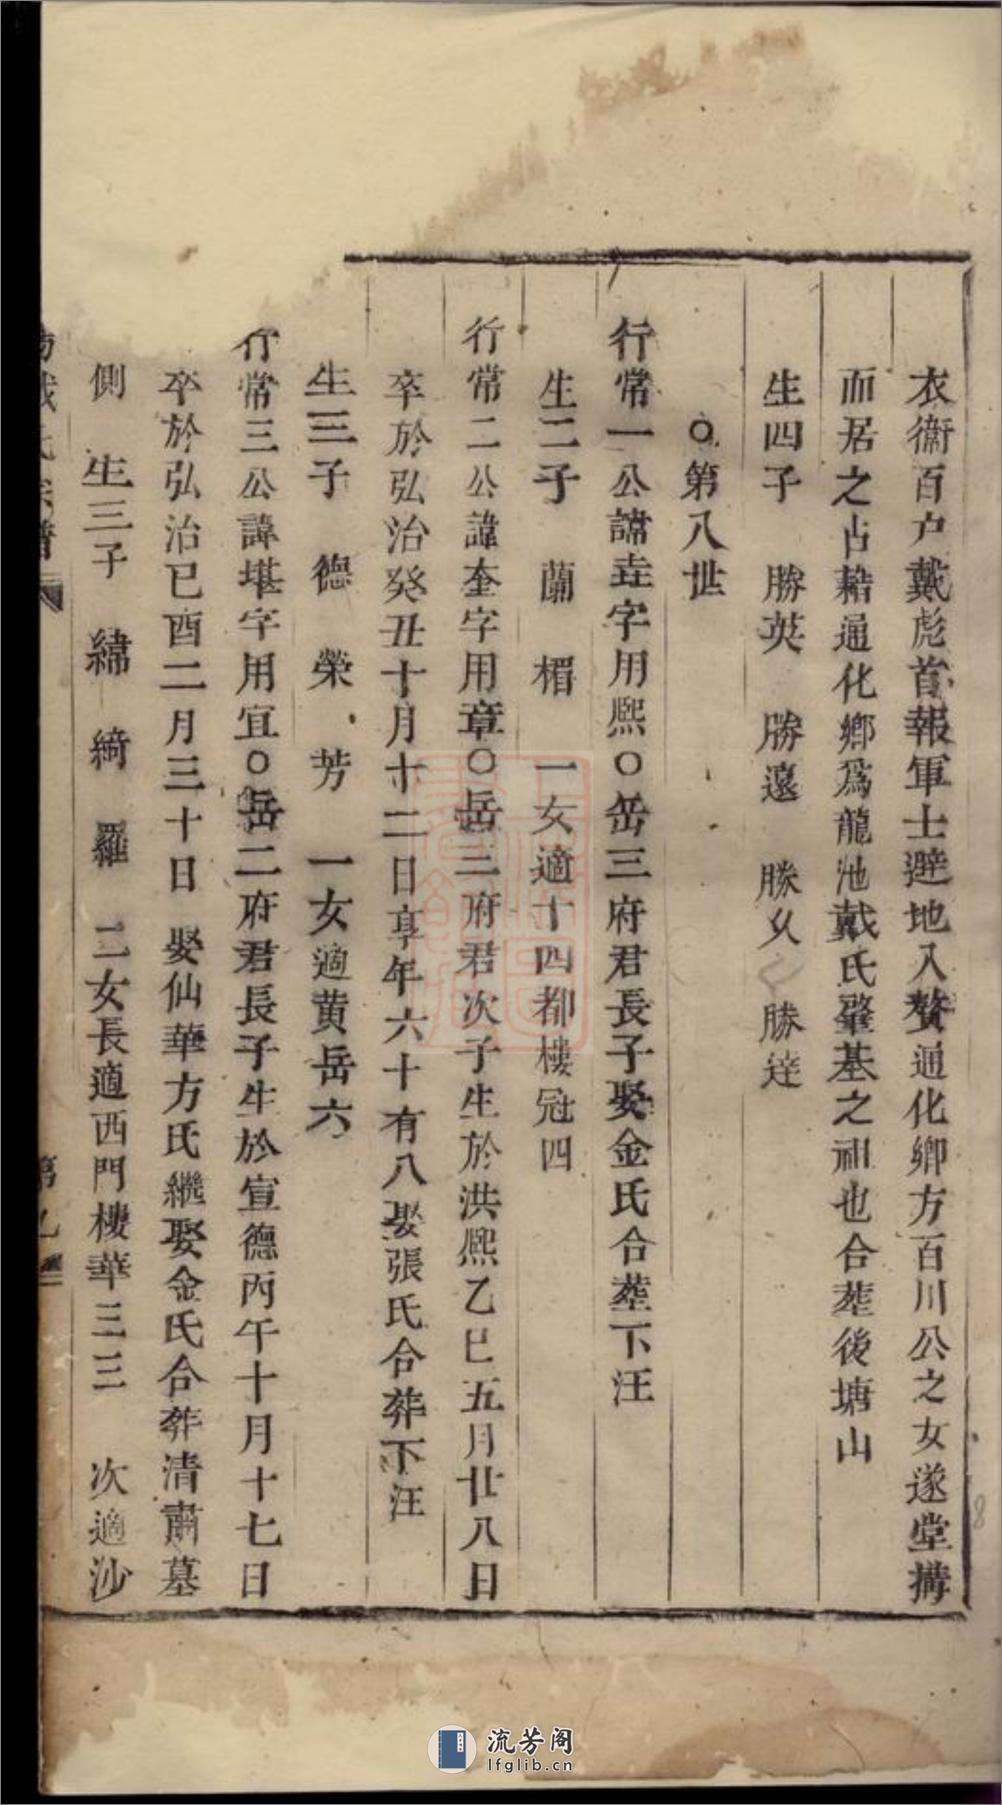 衣衞百户戴彪首報軍士避地入贅通化鄉方百川公之女遂堂搆
而居之占耤通化鄉爲龍池戴氏肇基之祖也合塟後塘山
生四子 勝英 勝遠 勝乆 勝達
○第八世
行常一公諱垚字用熙○岳三府君長子娶金氏合塟下汪
生二子 蘭 楣 一女適十四都樓冠四
行常二公諱奎字用章○岳三府君次子生於洪熙乙巳五月廿八日
卒於弘治癸丑十月十二日享年六十有八娶張氏合葬下汪
生三子 德 榮 芳 一女適黄岳六
行常三公諱堪字用宜○岳二府君長子生於宣德丙午十月十七日
卒於弘治已酉二月三十日 娶仙華方氏繼娶金氏合葬清肅墓
側 生三子 緯 綺 羅 二女長適西門樓華三三 次適沙
戴氏宗譜
流芳阁
lfglib.cn